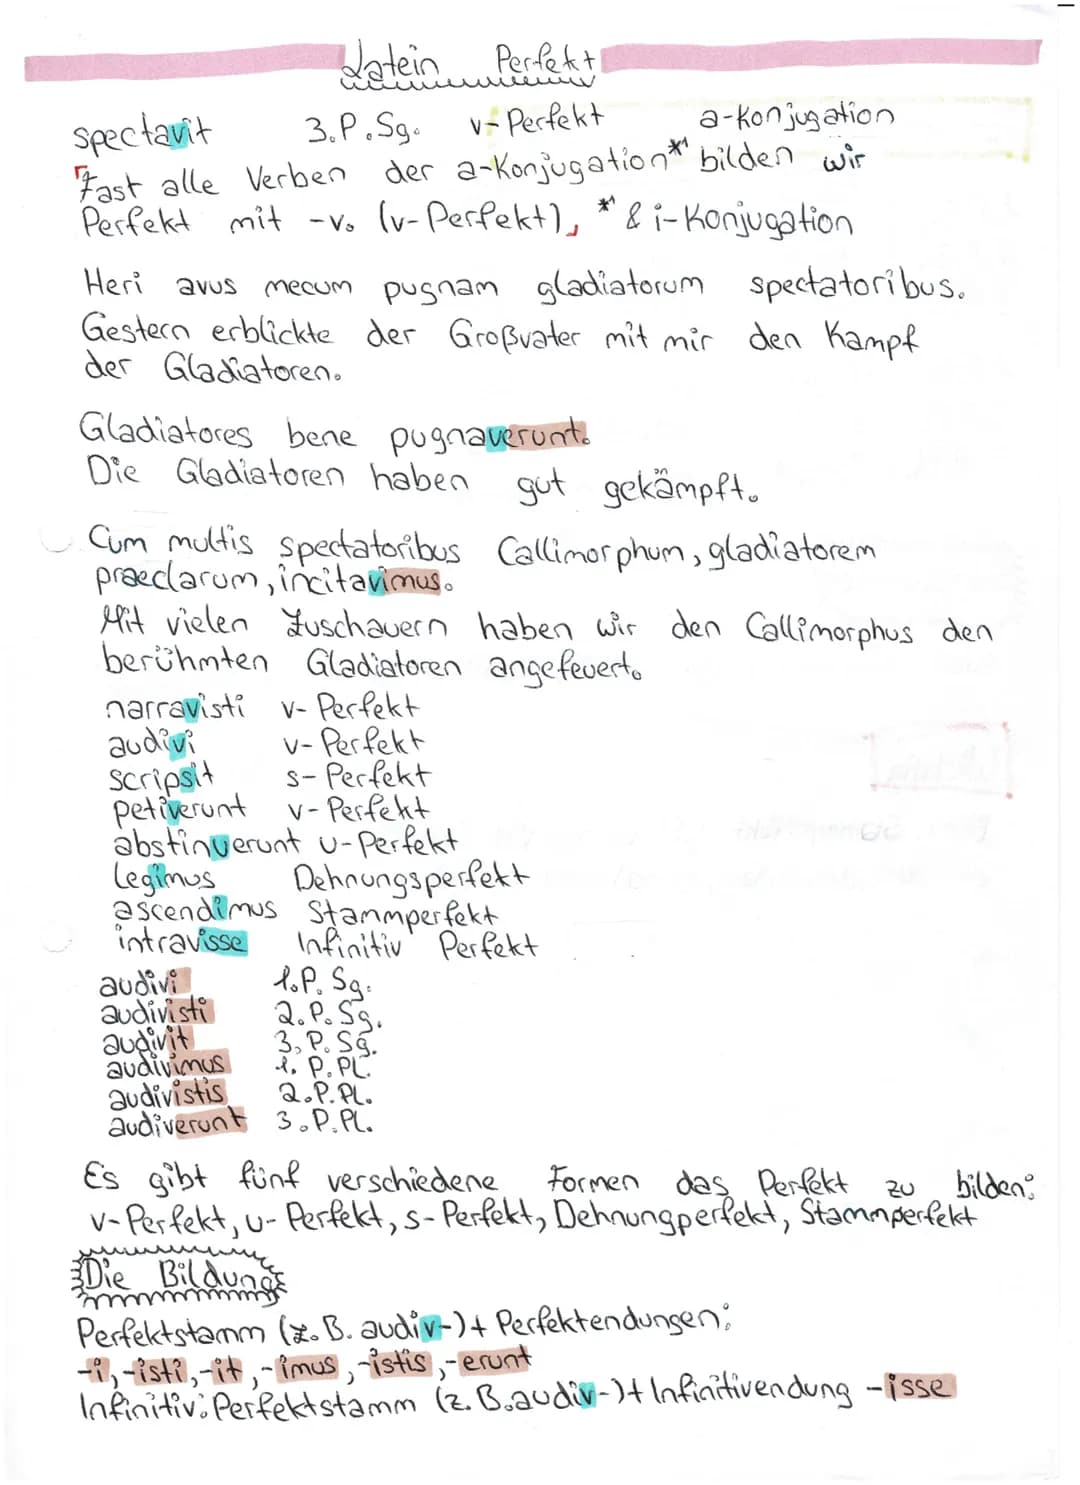 Latein Perfekt
spectavit 3.P.Sg. v-Perfekt a-Konjugation
Fast alle Verben der a-Konjugation*¹ bilden wir
Perfekt mit -v. (v-Perfekt), *¹ & i-Konjugation
Heri avus mecum pugnam gladiatorum spectatoribus.
Gestern erblickte der Großvater mit mir den Kampf
der Gladiatoren.
Gladiatores bene pugnaverunt.
Die Gladiatoren haben gut gekämpft.
Cum multis spectatoribus Callimorphum, gladiatorem
praeclarum, incitavimus.
Mit vielen Zuschauern haben wir den Callimorphus den
berühmten Gladiatoren angefeuert.
narravisti v-Perfekt
audivi v-Perfekt
scripsit s-Perfekt
petiverunt v-Perfekt
abstinuerunt u-Perfekt
legimus Dehnungsperfekt
ascendimus Stammperfekt
intravisse Infinitiv Perfekt
audivi 1.P. Sg.
audivisti 2.P. Sg.
audivit 3.P. Sg.
audivimus 1. P. Pl.
audivistis 2.P. Pl.
audiverunt 3.P.Pl.
Es gibt fünf verschiedene Formen das Perfekt zu bilden:
v-Perfekt, u-Perfekt, s-Perfekt, Dehnungperfekt, Stammperfekt
Die Bildung
Perfektstamm (z.B. audiv-)+ Perfektendungen:
-i, -isti, -it, -imus, -istis, -erunt
Infinitiv: Perfektstamm (z.B. audiv-)+ Infinitivendung -isse